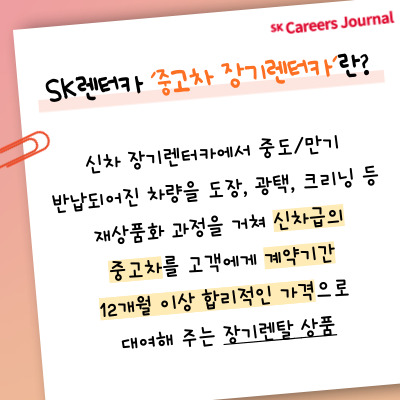 SK Careers Journal
SK렌터카 '중고차 장기렌터카'란?
신차 장기렌터카에서 중도/만기
반납되어진 차량을 도장, 광택, 크리닝 등
재상품화 과정을 거쳐 신차급의
중고차를 고객에게 계약기간
12개월 이상 합리적인 가격으로
대여해 주는 장기렌탈 상품